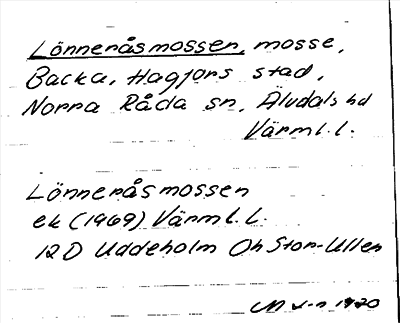 Lönneråsmossen, mosse,
Backa, Hagfors stad,
Norra Råda sn, Älvdals hd
Värml.l.
Lönneråsmossen
ek (1969) Värml.l.
12D Uddeholm Öh Stor-Ullen
1970